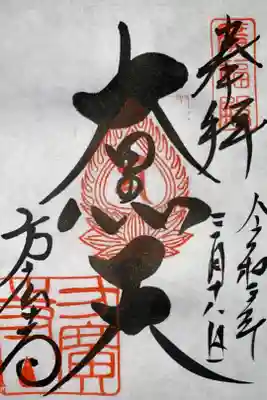 奉拝
大黒天
令和二年
三月十八日
方広寺
方廣寺